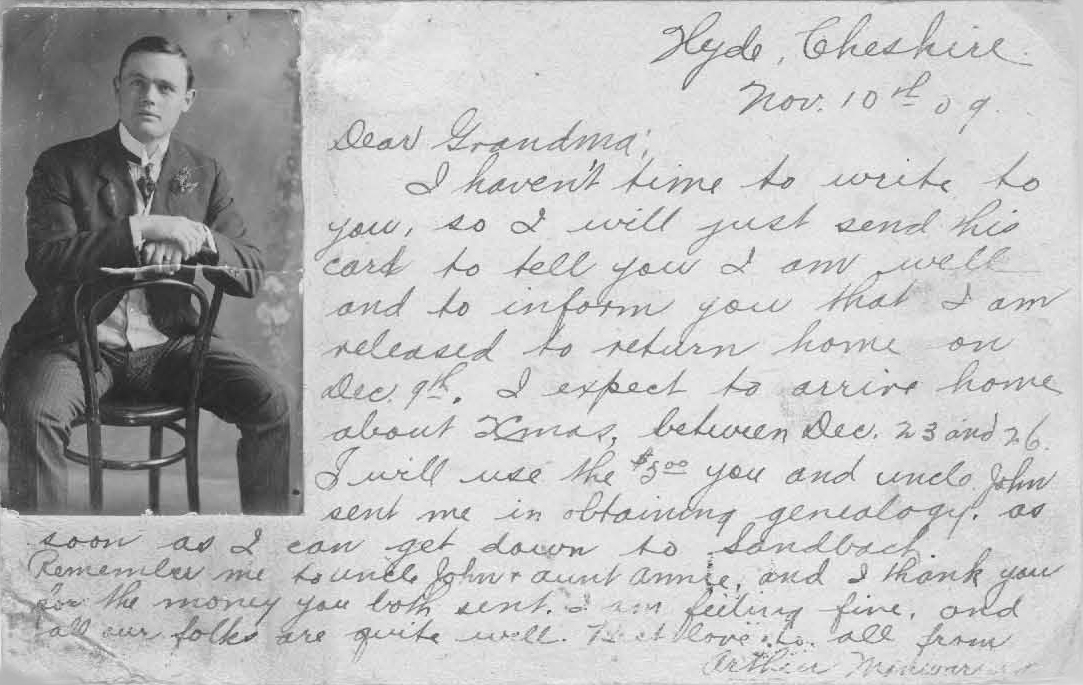 Hyde, Cheshire.
Nov. 10th 09.
Dear Grandma;
I haven't time to write to
you, so I will just send this
card to tell you I am well
and to inform you that I am
released to return home on
Dec. 9th. I expect to arrive home
about Xmas, between Dec. 23 and 26.
I will use the $5.00 you and uncle John
sent me in obtaining genealogy, as
soon as I can get down to Sandbach
Remember me to uncle John + aunt Annie, and I thank you
for the money you both sent. I am feeling fine, and
all our folks are quite well. Best love to all from
Arthur